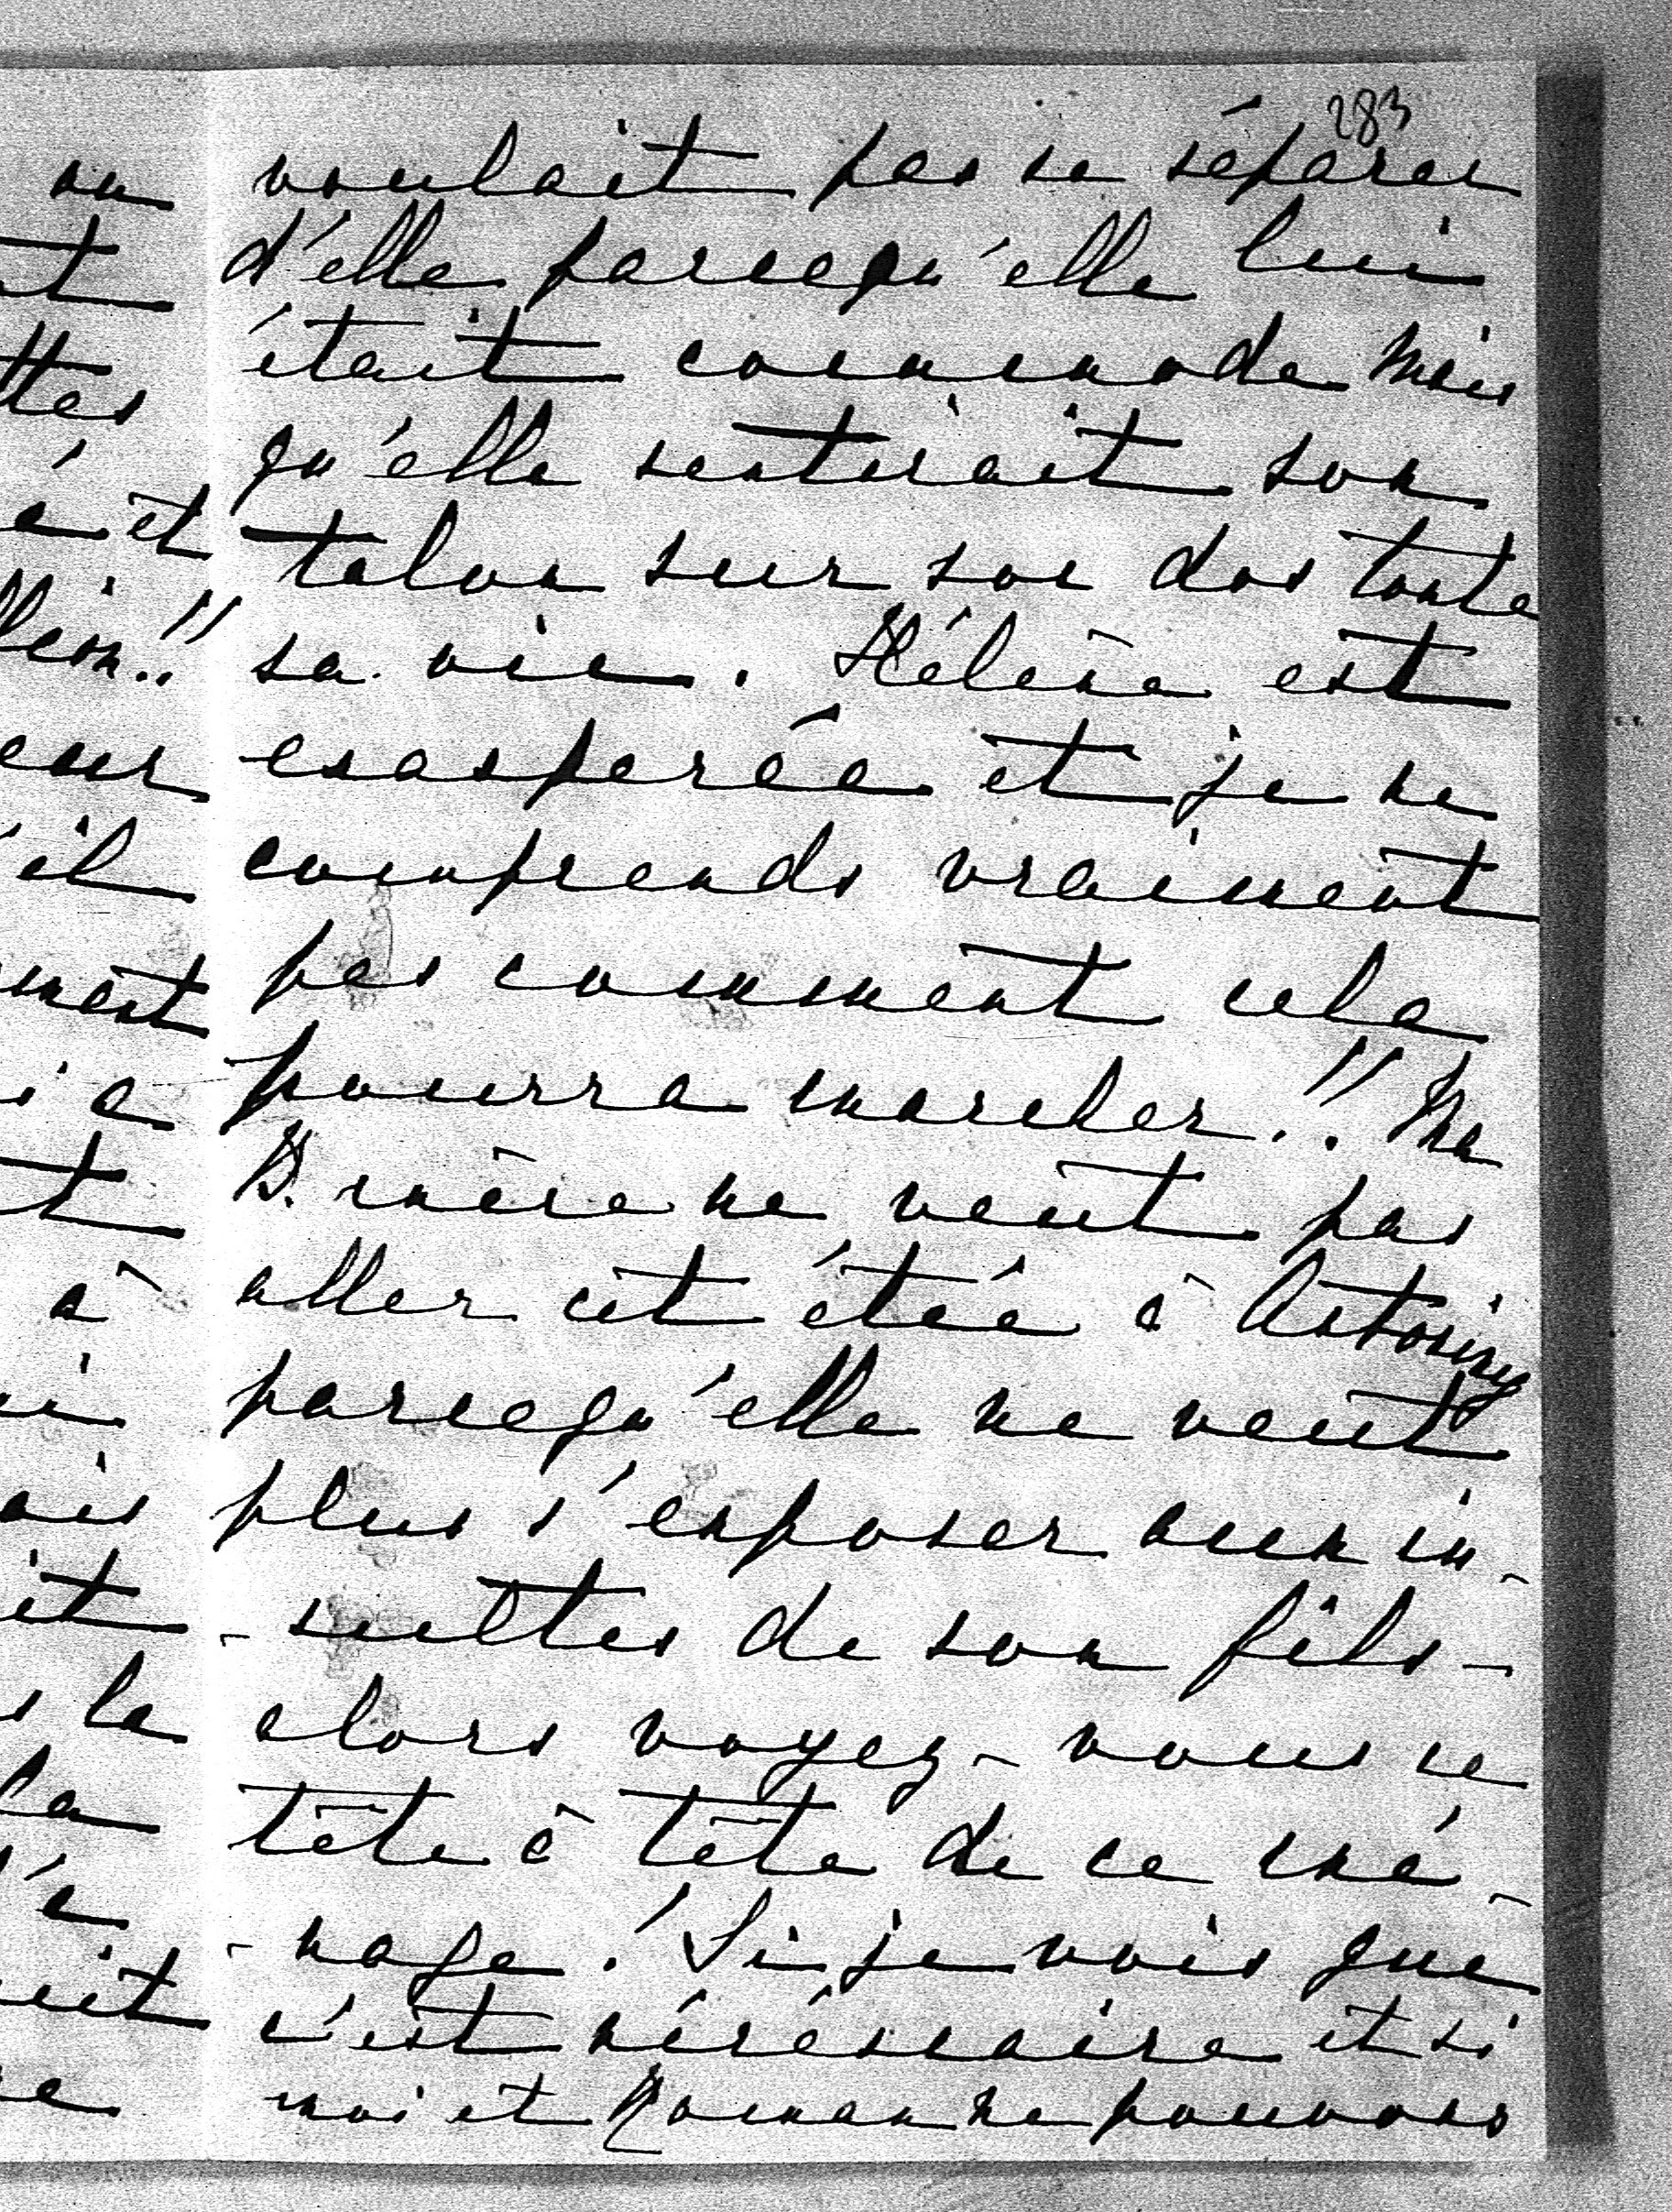 283
voulait pas se séparer
d'elle parcequ'elle lui
était commode mais
qu'elle sentirait son
talon sur son dos toute
sa vie. Hélène est
exaspérée et je ne
comprends vraiment
pas comment cela
pourra marcher!! Ma
B. mère ne veut pas
aller cet été à Antoniny
parcequ'elle ne veut
plus s'exposer aux in-
-sultes de son fils -
alors voyez-vous ce
tête à tête de ce mé-
-nage! Si je vois que
c'est nécéssaire et si
moi et Roman ne pouvons